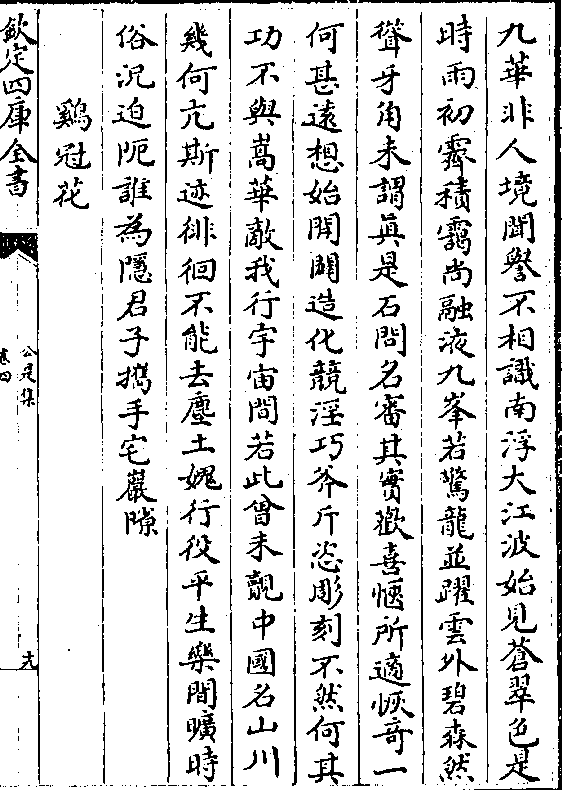 九華非人境聞譽不相識南浮大江波始見蒼翠色是
時雨初霽積靄尚融液九峯若驚龍並躍雲外碧森然
聳牙角未謂眞是石問名審其實歡喜愜所適恢竒一
何甚遠想始開闢造化競淫巧斧斤恣彫刻不然何其
功不與嵩華敵我行宇宙間若此曾未覿中國名山川
幾何亢斯迹徘徊不能去塵土媿行役平生樂閒曠時
俗況迫阨誰為隱君子攜手宅巖隙
鷄冠花
欽定四庫全書
公是集
卷四
九